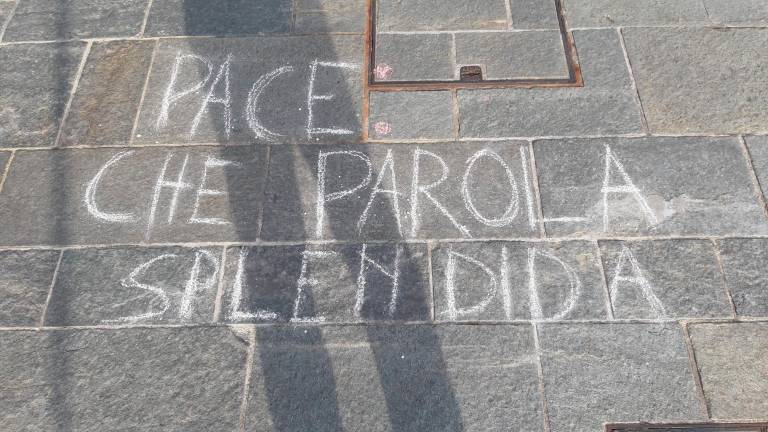 PACE
CHE PAROLA
SPLENDIDA